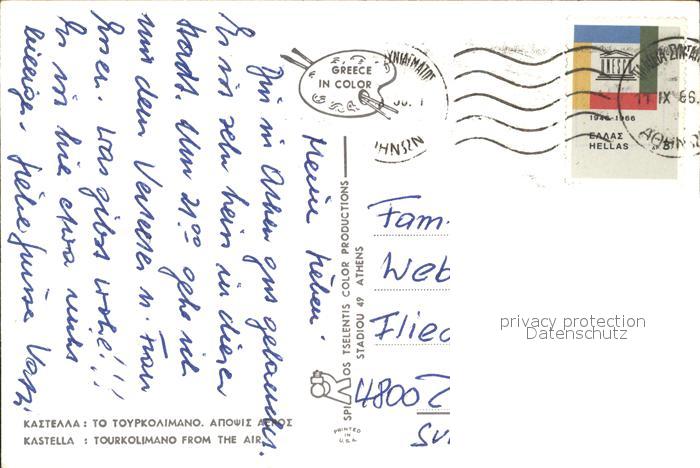 Meine Lieben.
Bin in Athen gut gelandet.
Es ist sehr heiss in dieser
Stadt. Um 21.00 gehe ich
mit dem Vertreter n. Frau
Essen. Was gibts wohl!!!
Es ist hier etwas
billiger. Liebe Grüsse
GREECE
IN COLOR
SPIROS TSELENTIS COLOR PRODUCTIONS
STADIOU 49 ATHENS
PRINTED
IN
U.S.A.
ΚΑΣΤΕΛΛΑ : ΤΟ ΤΟΥΡΚΟΛΙΜΑΝΟ. ΑΠΟΨΙΣ ΑΕΡΟΣ
KASTELLA : TOURKOLIMANO FROM THE AIR
ΣΥΝΤΑΓΜΑΤΟΣ
ΑΘΗΝΩΝ
11 IX 66
1946-1966
ΕΛΛΑΣ
HELLAS
Fam.
Web
Flied
4800 Z
privacy protection
Datenschutz